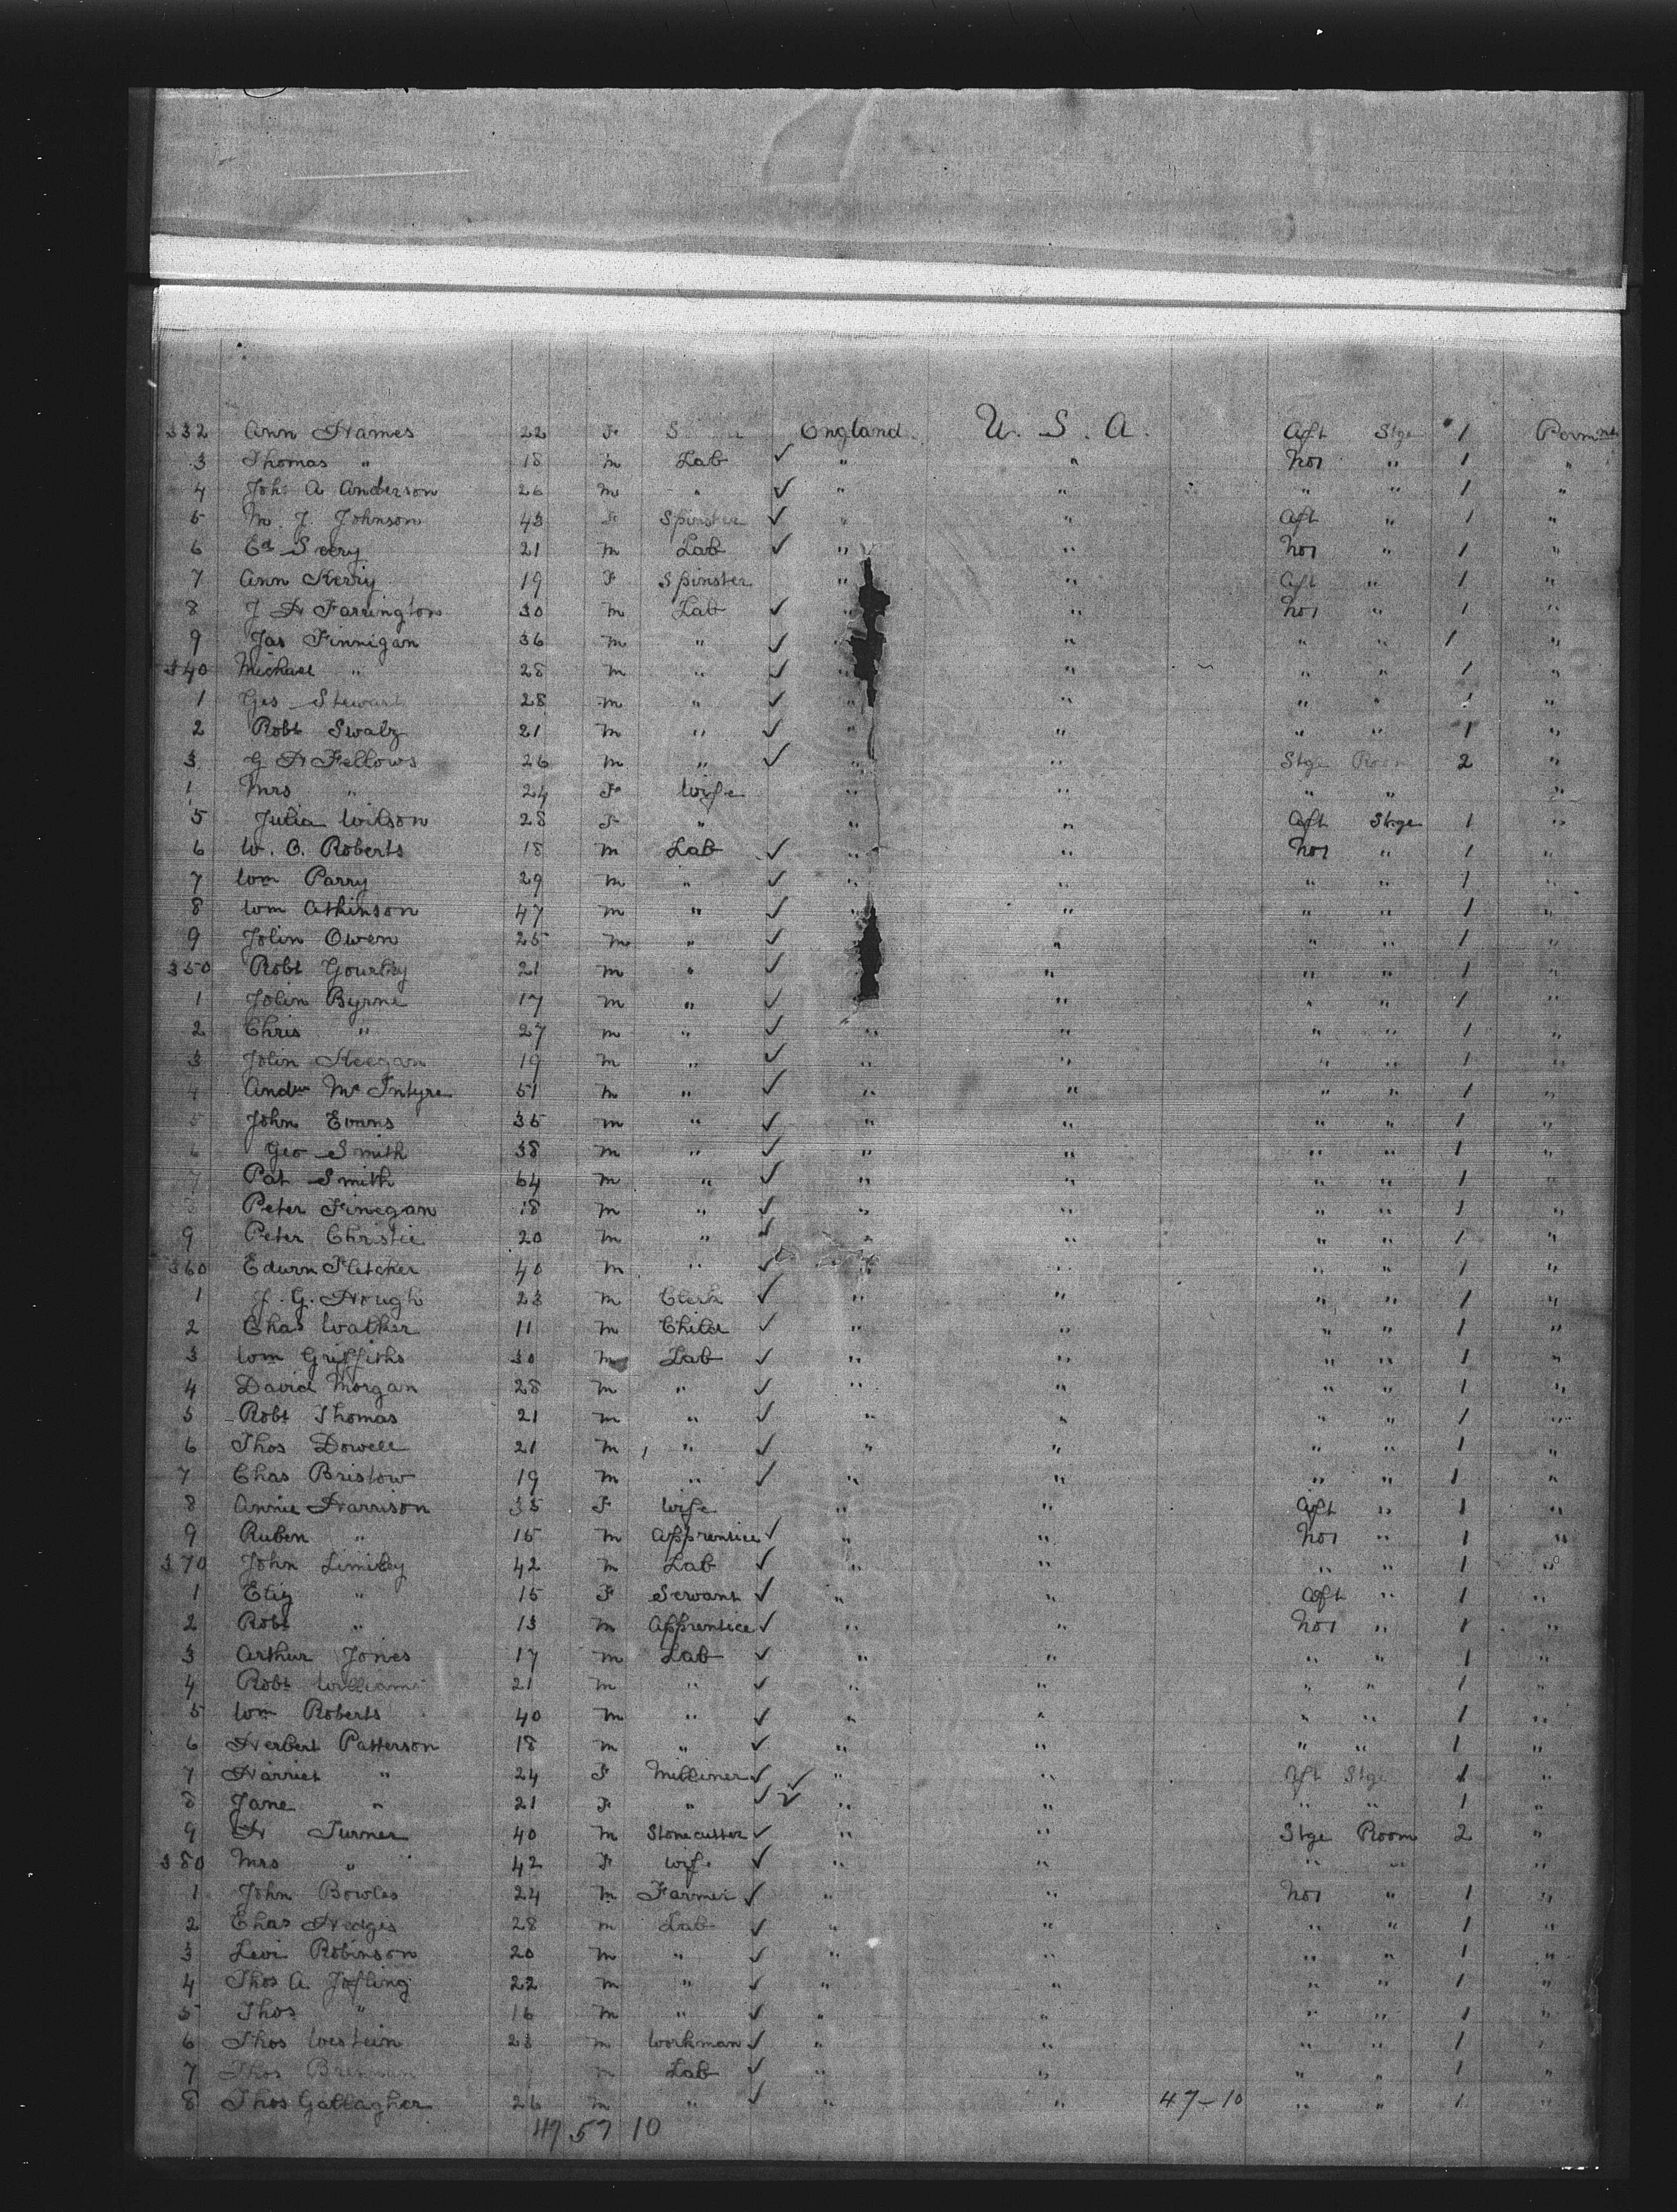 332 Ann Hames 22 F England U. S. A. Aft Stge 1 Permnt
3 Thomas " 18 m Lab ✓ " " No 1 " 1 "
4 Joh. A Anderson 26 m " ✓ " " " " 1 "
5 M. J. Johnson 43 F Spinster ✓ " " Aft " 1 "
6 21 m Lab ✓ " " No 1 " 1 "
7 Ann Kerry 19 F Spinster " " Aft " 1 "
8 J H Farrington 30 m Lab ✓ " " No 1 " 1 "
9 Jas Finnigan 36 m " ✓ " " " " 1 "
340 Michael " 28 m " ✓ " " " " 1 "
1 Geo Stewart 28 m " ✓ " " " " 1 "
2 Robt Swalz 21 m " ✓ " " " " 1 "
3 G H Fellows 26 m " ✓ " " Stge Room 2 "
Mrs " 24 F Wife " " " " "
5 Julia Wilson 28 F " " " Aft Stge 1 "
6 W. O. Roberts 18 m Lab ✓ " " No 1 " 1 "
7 Wm Parry 29 m " ✓ " " " " 1 "
8 Wm Atkinson 47 m " ✓ " " " " 1 "
9 John Owen 25 m " ✓ " " " " 1 "
350 Robt Gourley 21 m " ✓ " " " 1 "
1 John Byrne 17 m " ✓ " " " 1 "
2 Chris " 27 m " ✓ " " " " 1 "
3 John Keegan 19 m " ✓ " " " " 1 "
4 Andw McIntyre 51 m " ✓ " " " " 1 "
5 John Evans 35 m " ✓ " " " " 1 "
6 Geo Smith 38 m " ✓ " " " " 1 "
7 Pat Smith 64 m " ✓ " " " " 1 "
8 Peter Finegan 18 m " ✓ " " " " 1 "
9 Peter Christie 20 m " ✓ " " " " 1 "
360 Edwrn Fletcher 40 m " ✓ " " " " 1 "
1 J. G. Hough 23 m Clerk ✓ " " " " 1 "
2 Chas Walker 11 m Child ✓ " " " " 1 "
3 Wm Griffiths 30 m Lab ✓ " " " " 1 "
4 David Morgan 28 m " ✓ " " " " 1 "
5 Robt Thomas 21 m " ✓ " " " " 1 "
6 Thos Dowell 21 m " ✓ " " " " 1 "
7 Chas Bristow 19 m " ✓ " " " " 1 "
8 Annie Harrison 35 F Wife " " Aft " 1 "
9 Ruben " 15 m Apprentice ✓ " " No 1 " 1 "
370 John 42 m Lab ✓ " " " " 1 "
1 " 15 F Servant ✓ " " Aft " 1 "
2 Robt " 13 m Apprentice ✓ " " No 1 " 1 "
3 Arthur Jones 17 m Lab ✓ " " " " 1 "
4 Robt Williams 21 m " ✓ " " " " 1 "
5 Wm Roberts 40 m " ✓ " " " " 1 "
6 Herbert Patterson 18 m " ✓ " " " " 1 "
7 Harriet " 24 F Milliner ✓ ✓ " " Aft Stge 1 "
8 Jane " 21 F " ✓ ✓ " " " " 1 "
9 H Turner 40 m Stonecutter ✓ " " Stge Room 2 "
380 Mrs " 42 F Wife ✓ " " " " "
1 John Bowles 24 m Farmer ✓ " " No 1 " 1 "
2 Chas Hedges 28 m Lab ✓ " " " " 1 "
3 Levi Robinson 20 m " ✓ " " " " 1 "
4 Thos A. Jopling 22 m " ✓ " " " " 1 "
5 Thos " 16 m " ✓ " " " " 1 "
6 Thos 23 m Workman ✓ " " " " 1 "
7 Thos Brennan m Lab ✓ " " " " 1 "
8 Thos Gallagher 26 m " ✓ " " 47-10 " " 1 "
49 57 10